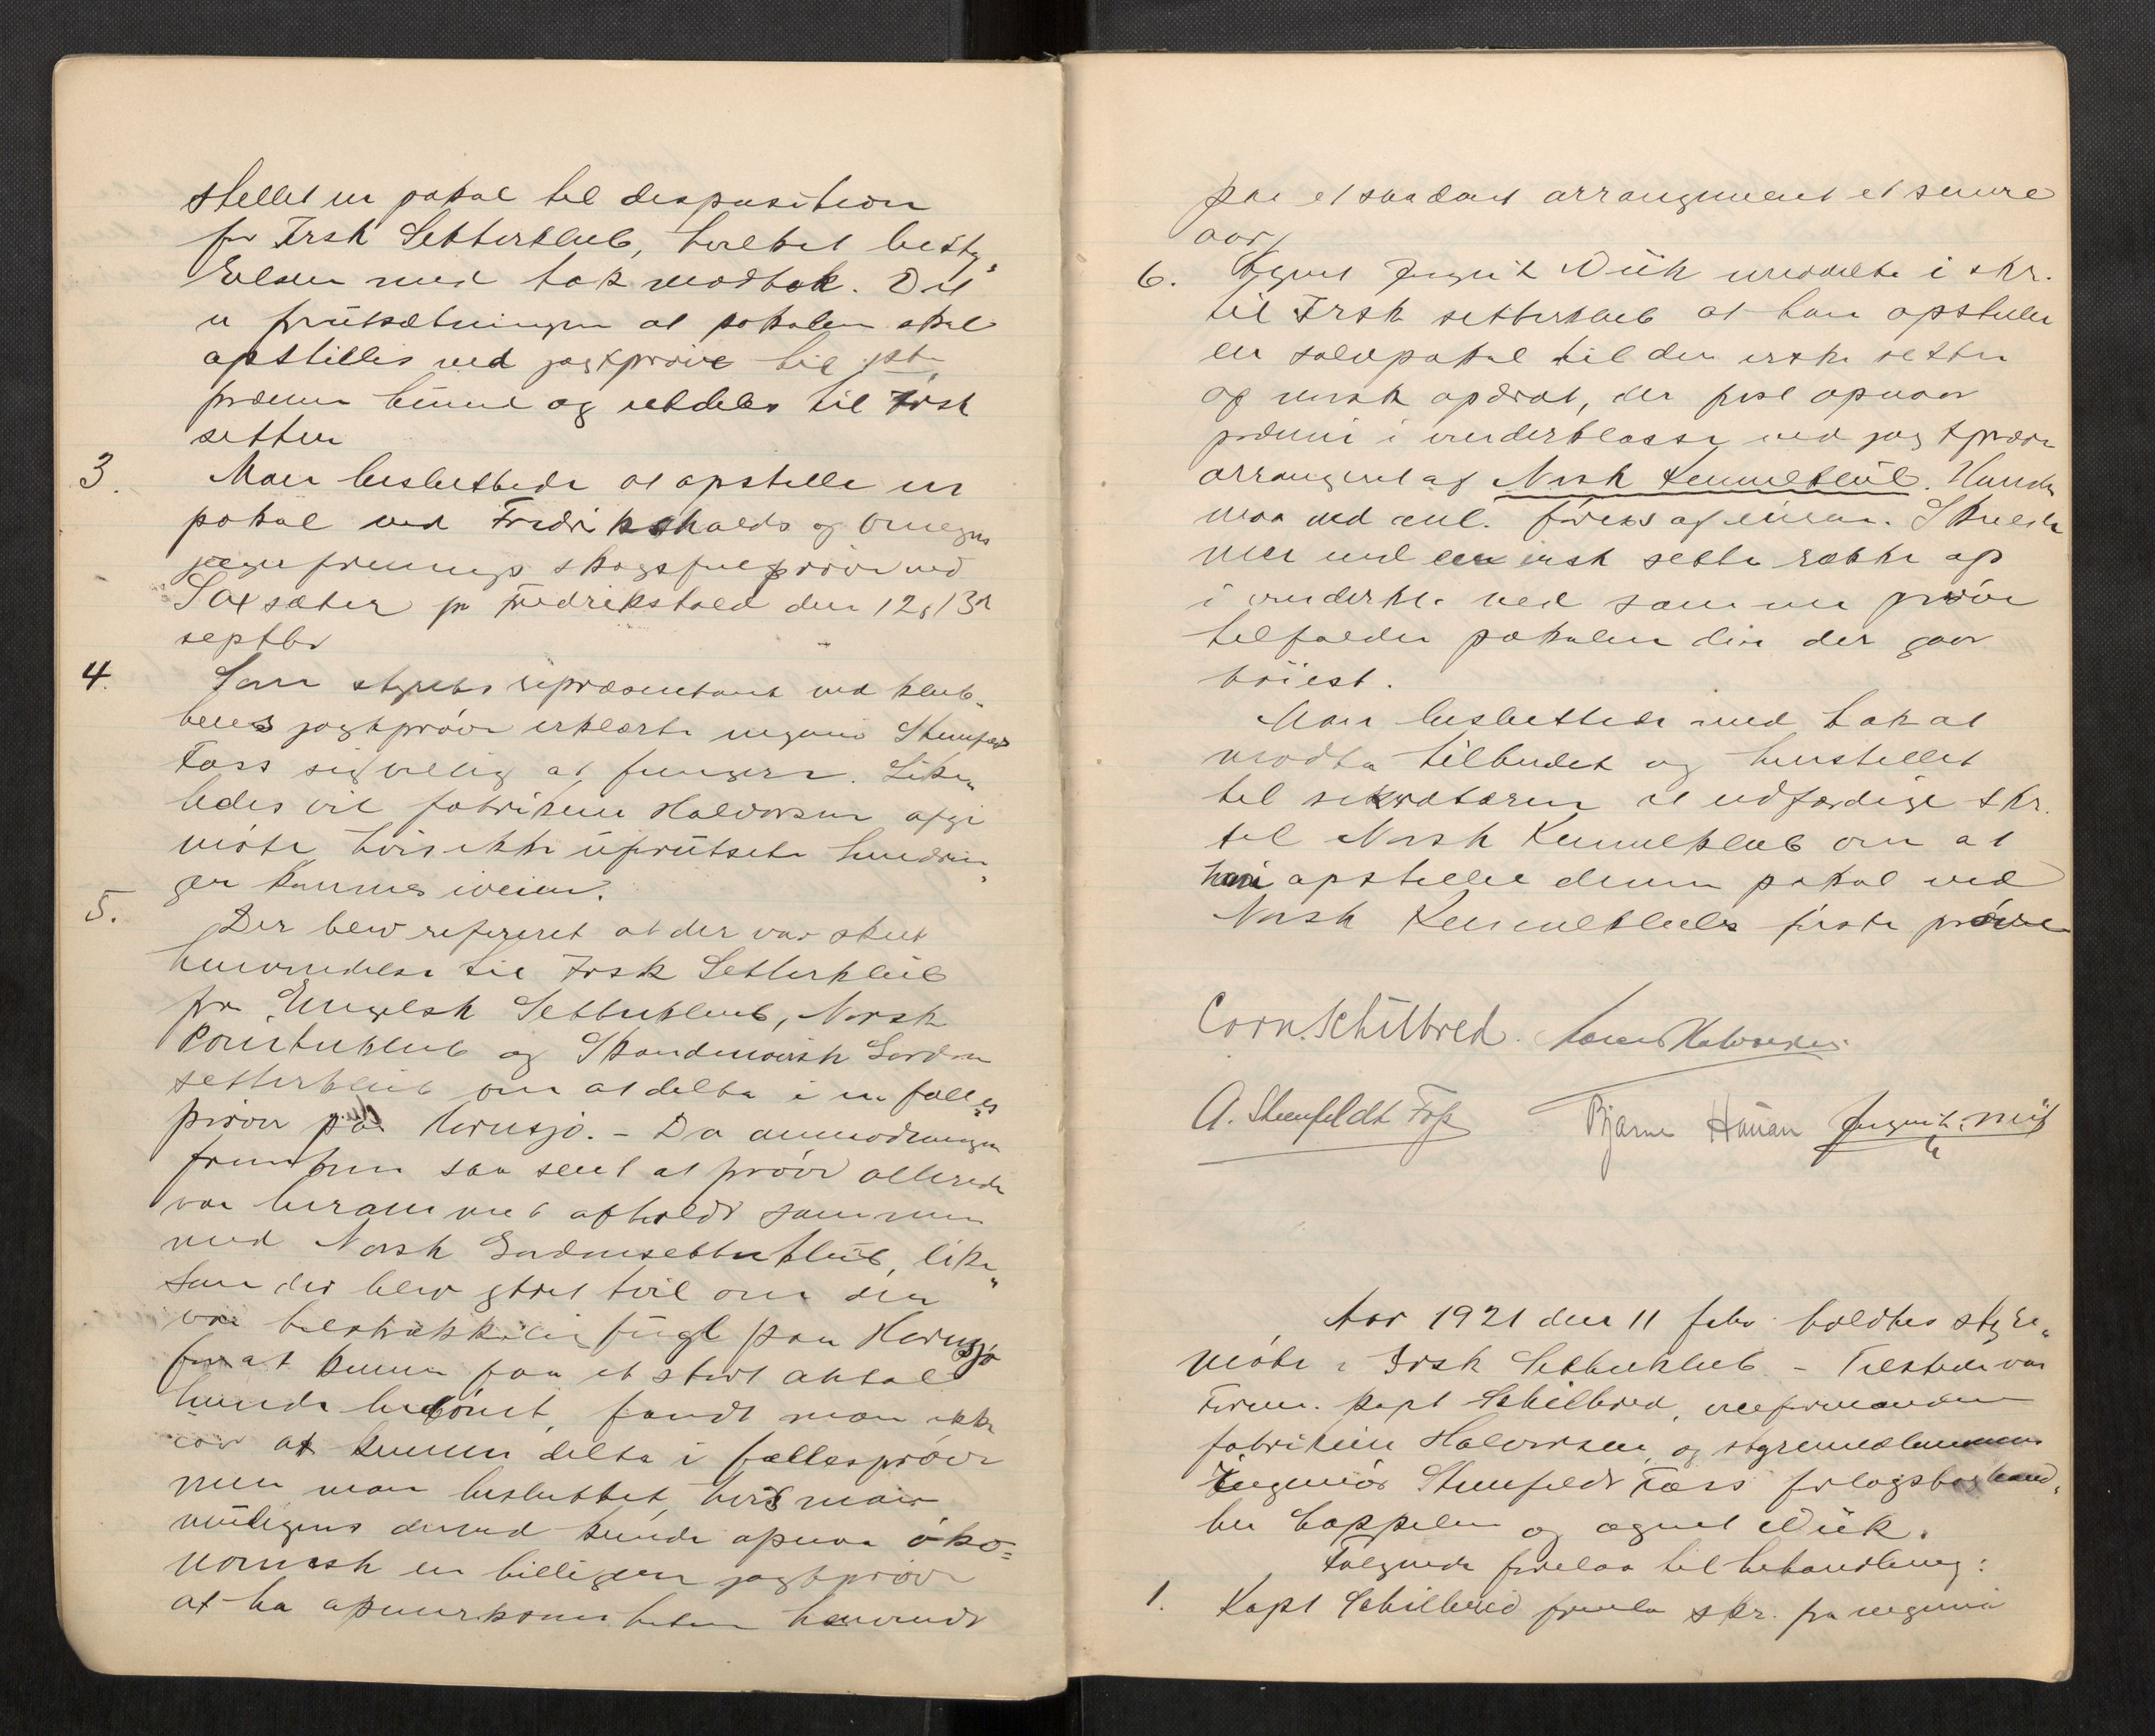 stillet en pokal til disposition
for Irsk Setterklub, hvilket besty-
relsen med tak modtok. Det
er forutsætningen at pokalen skal
opstilles ved jagtprøve til 1ste
præmie hund og utdeles til Irsk
setter
3. Man besluttede at opstille en
pokal ved Fredrikshalds og Omegns
jægerforenings skogsfuglprøve ved
Saxsæter pr Fredrikshald den 12, 13de
septbr
4. Som styrets repræsentant ved klub-
bens jagtprøve erklærte ingeniør Stenfeldt
Foss sig villig at fungere. Like-
ledes vil fabrikeier Halvorsen afgi
møte hvis ikke uforutsete hindrin-
ger kommer iveien.
5. Der blev referert at der var sket
henvendelse til Irsk Setterklub
fra Engelsk Setterklub, Norsk
Pointerklub og Skandinavisk Gordon
setterklub om at delta i en felles
prøve på Kornsjø. - Da anmodningen
fremkom saa sent at prøve allerede
var berammet afholdt sammen
med Norsk Gordonsetterklub, like-
som der blev ytret tvil om der
var tilstrækkelig fugl paa Kornsjø
for at kunne faa et stort antal
hunde bedømt, fandt man ikke
at kunne delta i fællesprøve
men man besluttet, hvis man
muligens derved kunde opnaa øko-
nomisk en billigere jagtprøve
at ha opmerksomheten henvendt
paa et saadant arrangement et senere
aar.
6. Agent Ingvit Wiik meddelte i skr.
til Irsk setterklub at han opstiller
en sølvpokal til den irske setter
af norsk opdræt, der først opnaar
præmie i vinderklasse ved jagtprøve
arrangeret af Norsk Kennelklub. Hunden
maa ved anl. føres af eieren. Skulde
mer end een irsk setter række op
i vinderkl. ved samme prøve
tilfalder pokalen den der gaar
høiest.
Man besluttede med tak at
modta tilbudet og henstillet
til sekretæren at udfærdige skr.
til Norsk Kennelklub om at
han opstiller denne pokal ved
Norsk Kennelklubs første prøve
Corn. Schilbred. Halvorsen.
A. Stenfeldt Foss Bjarne Hanan Ingvit Wiik
Aar 1921 den 11 febr holdtes styre-
møte i Irsk Setterklub - Tilstede var
Form. kapt Schilbred, viceformanden
fabrikeier Halvorsen, og styremedlemmene
Ingeniør Stenfeldt Foss forlagsboghand-
ler Cappelen og agent Wiik.
Følgende forelaa til behandling:
1. Kapt Schilbred fremla skr. fra ingeniør